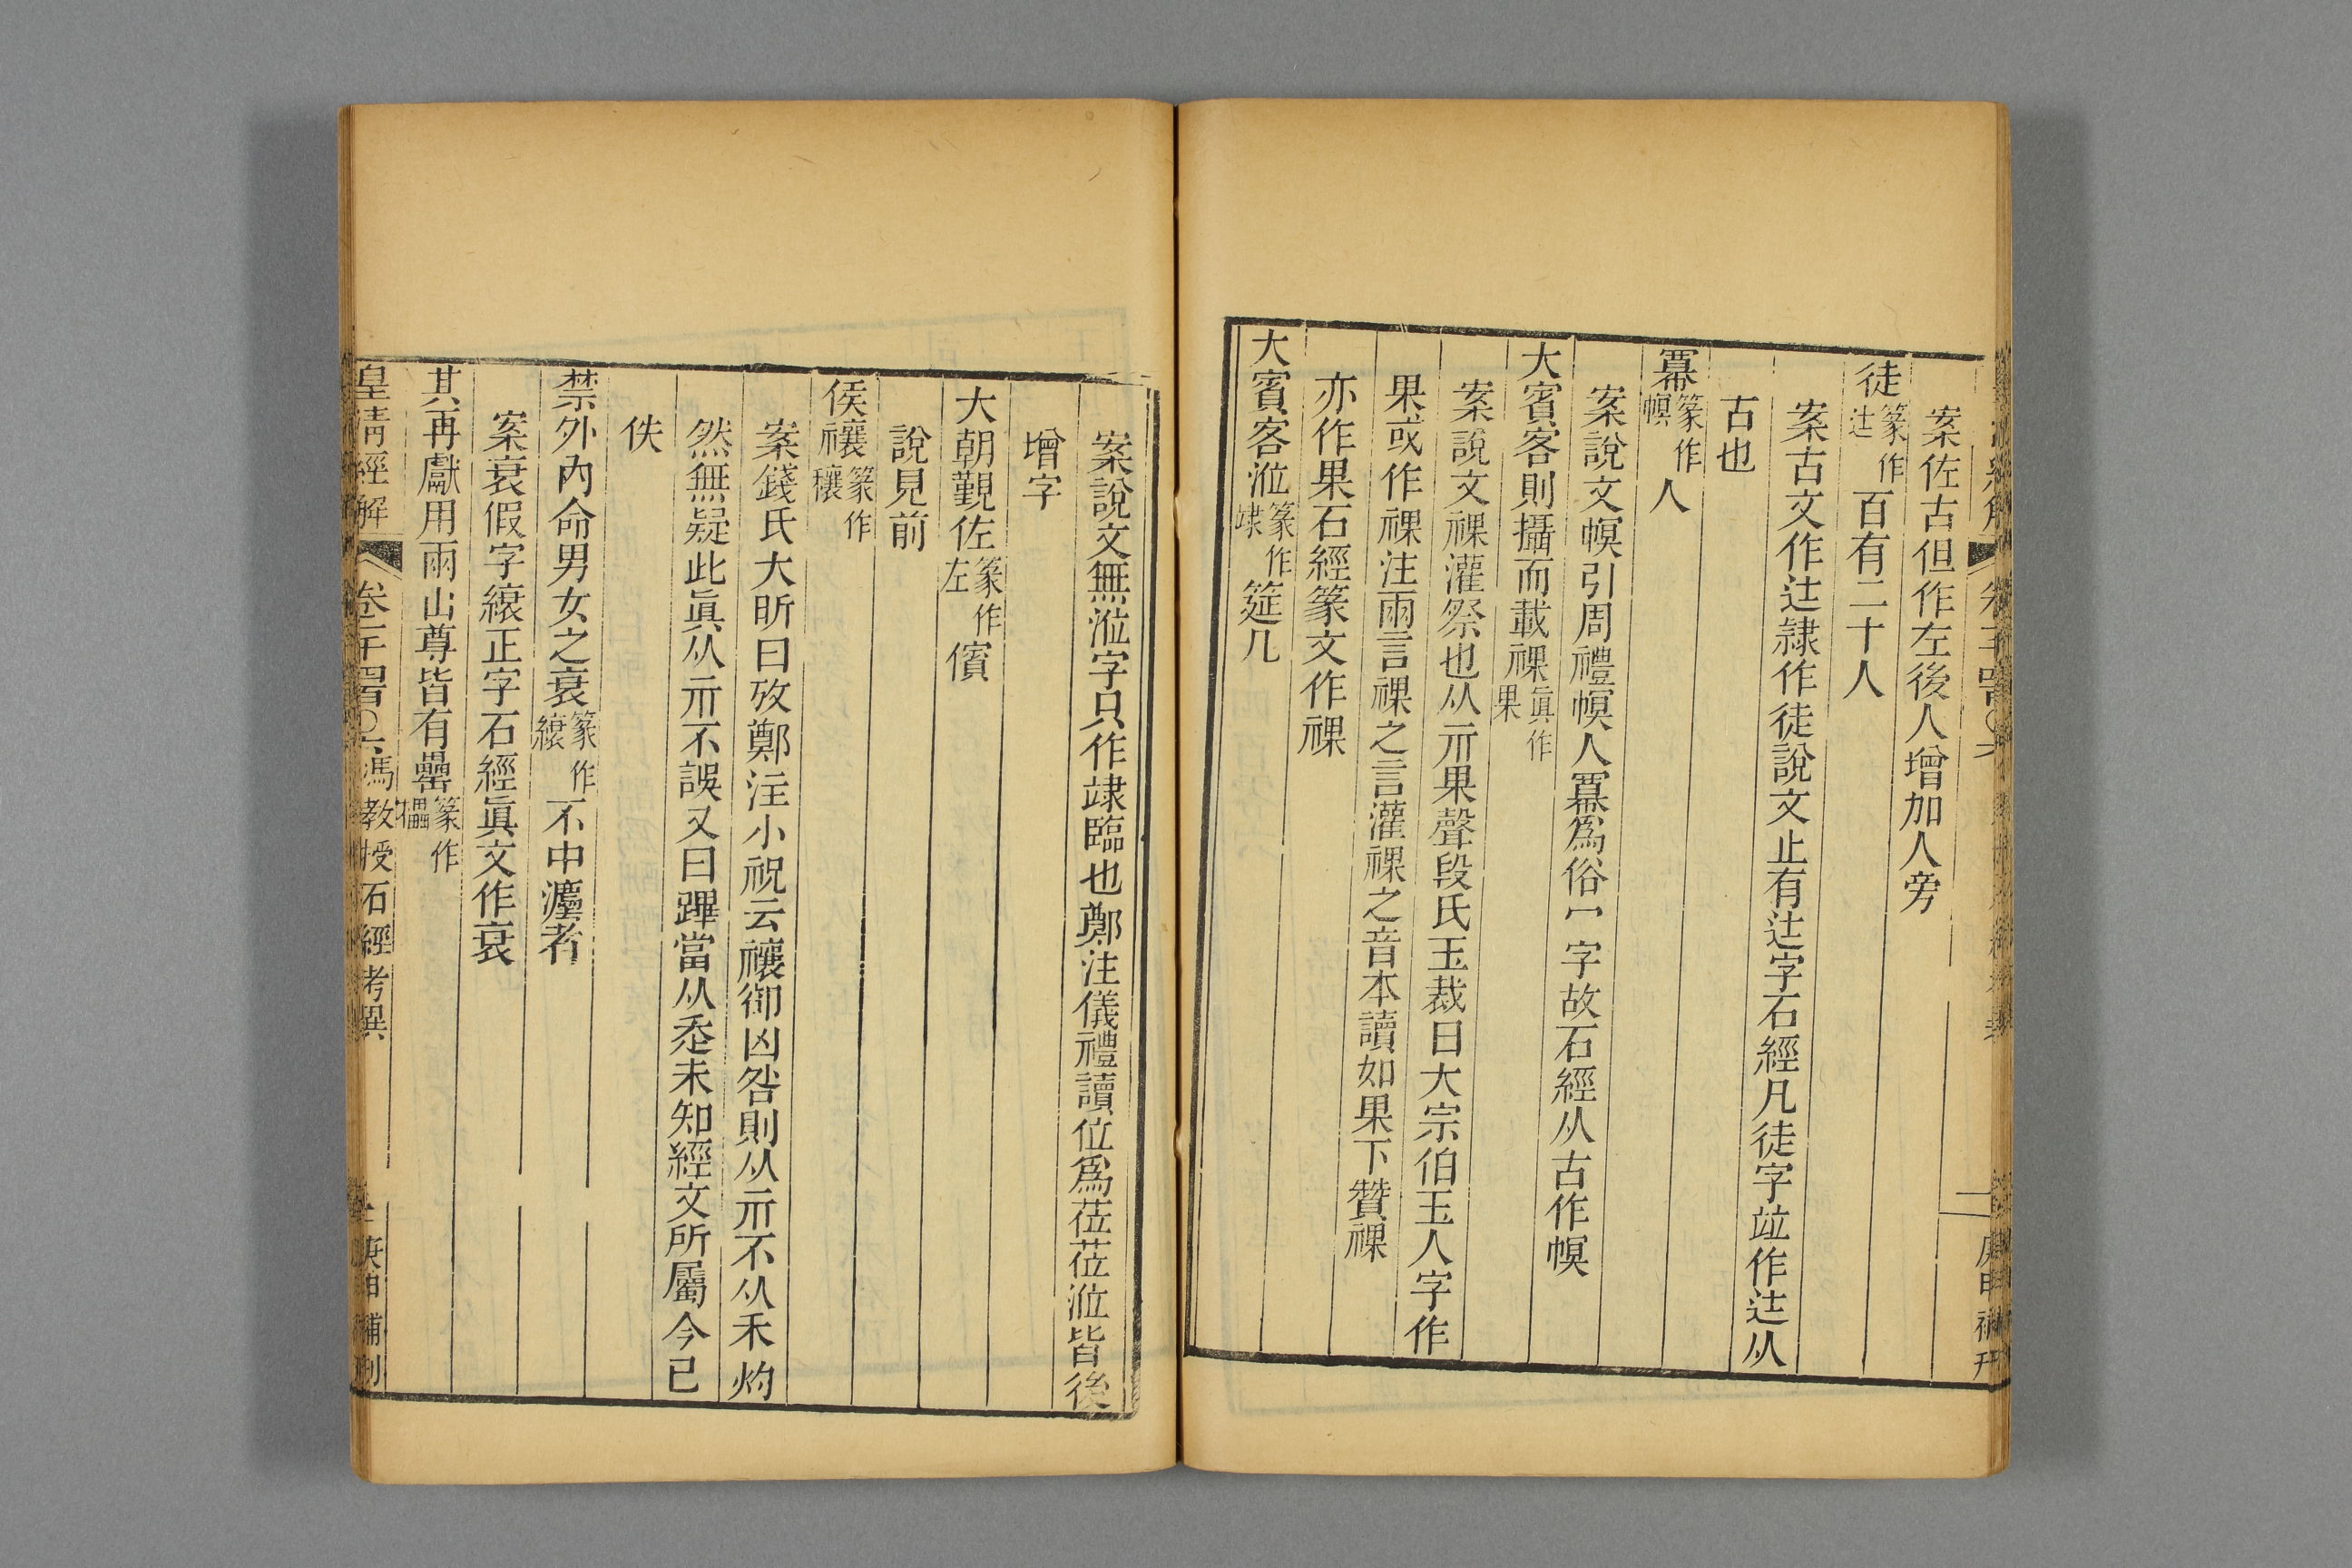 案佐古但作左後人增加人旁
徒篆作𨑒百有二十人
案古文作𨑒隷作徒說文止有𨑒字石經凡徒字竝作𨑒从
古也
冪篆作幎人
案說文幎引周禮幎人冪爲俗冖字故石經从古作幎
大賓客則攝而載祼眞作果
案說文祼灌祭也从示果聲段氏玉裁曰大宗伯玉人字作
果或作祼注兩言祼之言灌祼之音本讀如果下贊祼
亦作果石經篆文作祼
大賓客涖篆作𥩆筵几
案說文無涖字只作𥩆臨也鄭注儀禮讀位爲莅莅涖皆後
增字
大朝覲佐篆作左儐
說見前
侯禳篆作穰
案錢氏大昕曰攷鄭注小祝云禳御凶咎則从示不从禾灼
然無疑此眞从示不誤又曰蹕當从𢖻未知經文所屬今已
佚
禁外內命男女之衰篆作縗不中灋者
案衰假字縗正字石經眞文作衰
其再獻用兩山尊皆有罍篆作櫑
皇淸經解 卷千四百〇六馮教授石經考異 庚申補刊